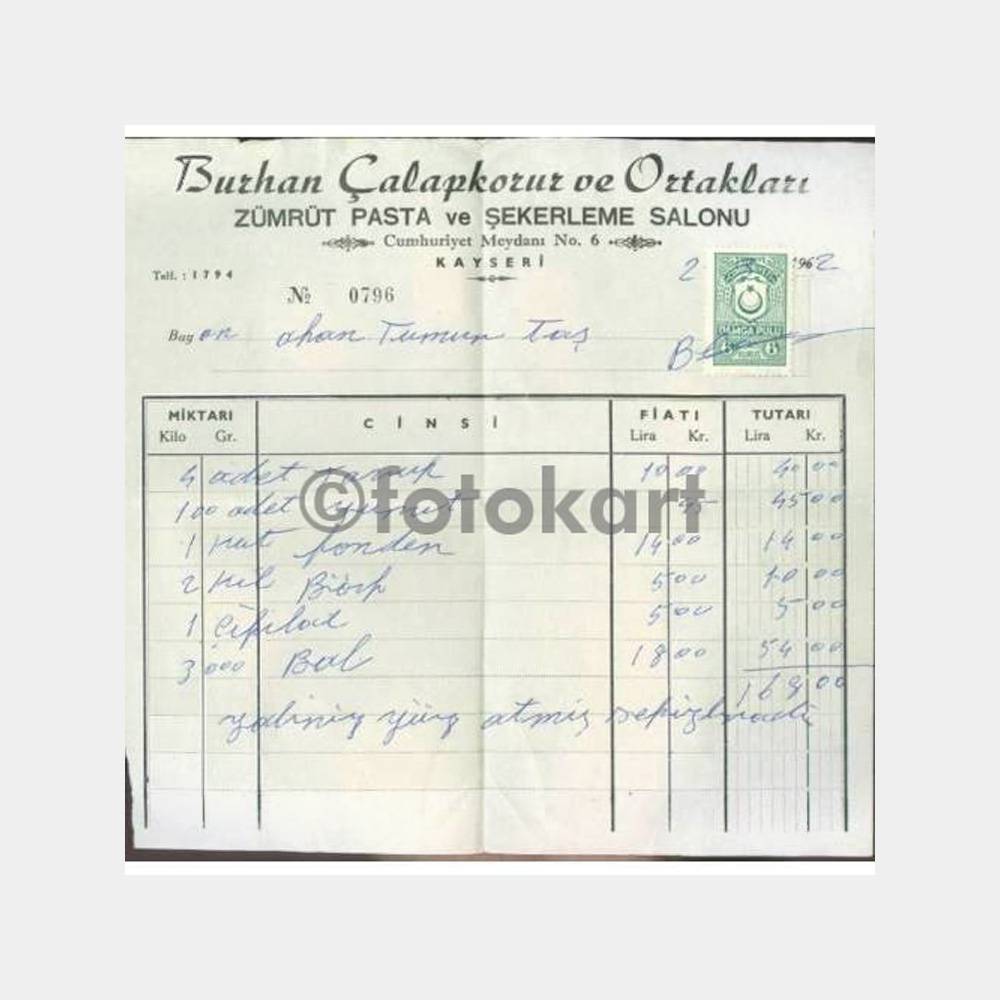 Burhan Çalapkorur ve Ortakları
ZÜMRÜT PASTA ve ŞEKERLEME SALONU
Cumhuriyet Meydanı No. 6
KAYSERİ
Telf. : 1794
2 1962
№ 0796
DAMGA PULU
Bay Tumur Taş
MİKTARI CİNSİ FİATI TUTARI
Kilo Gr. Lira Kr. Lira Kr.
4 adet 10 00 40 00
100 adet 45 00
1 fonden 14 00 14 00
2 5 00 10 00
1 5 00 5 00
3 000 Bal 18 00 54 00
168 00
yalınız yüz atmış
©fotokart